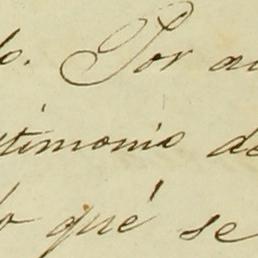 o. Por au
stimonio de
o qué se